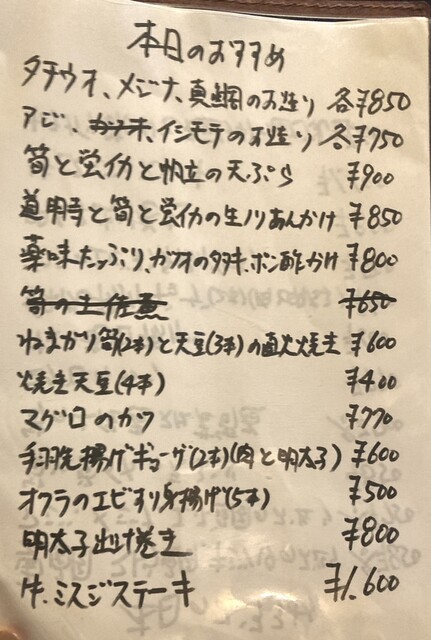 本日のおすすめ
タチウオ、メジナ、真鯛のお造り 各¥850
アジ、カツオ、イシモチのお造り 各¥750
筍と蛍イカと帆立の天ぷら ¥900
道明寺と筍と蛍イカの生ノリあんかけ ¥850
薬味たっぷり、カツオのタタキ、ポン酢かけ ¥800
筍の土佐煮 ¥650
ねまがり筍(2本)と天豆(3本)の直火焼き ¥600
焼き天豆(4本) ¥400
マグロのカツ ¥770
手羽先揚げギョーザ(2本)(肉と明太子) ¥600
オクラのエビすり身揚げ(5本) ¥500
明太子出汁巻き ¥800
牛、ミスジステーキ ¥1,600